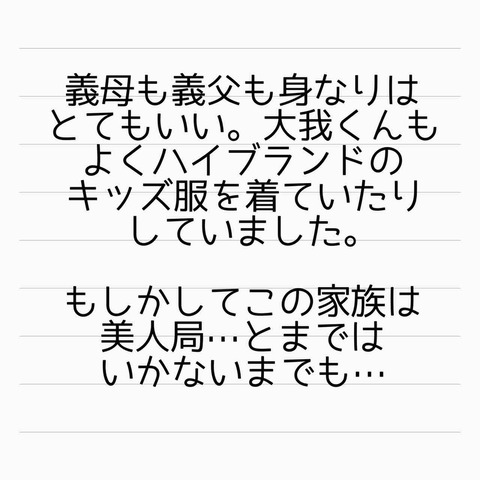 義母も義父も身なりは
とてもいい。大我くんも
よくハイブランドの
キッズ服を着ていたり
していました。
もしかしてこの家族は
美人局…とまでは
いかないまでも…